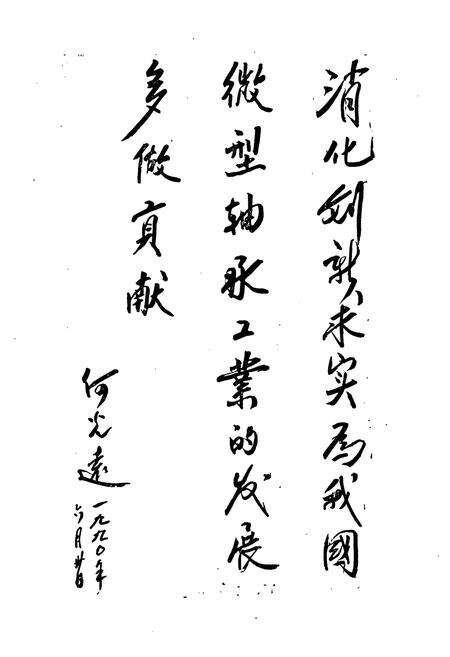 消化创新求实為我國
微型軸承工業的发展
多做貢献
何光遠
一九九〇年
六月廿日